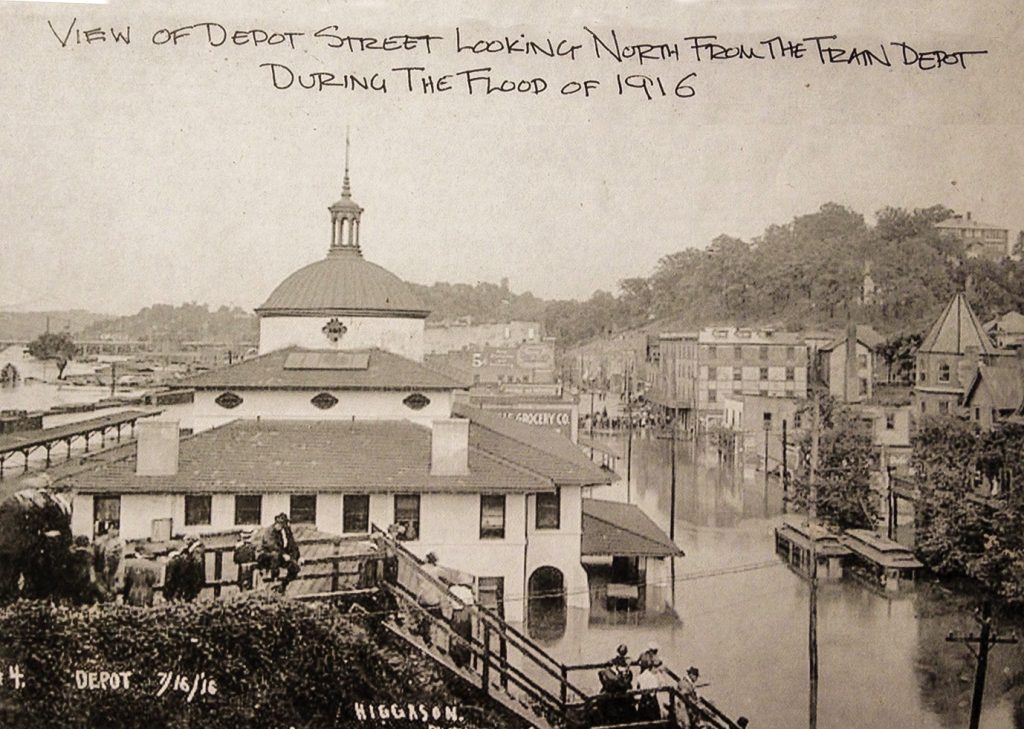 VIEW OF DEPOT STREET LOOKING NORTH FROM THE TRAIN DEPOT
DURING THE FLOOD OF 1916
5
GROCERY CO.
4. DEPOT 7/16/16
HIGGASON.